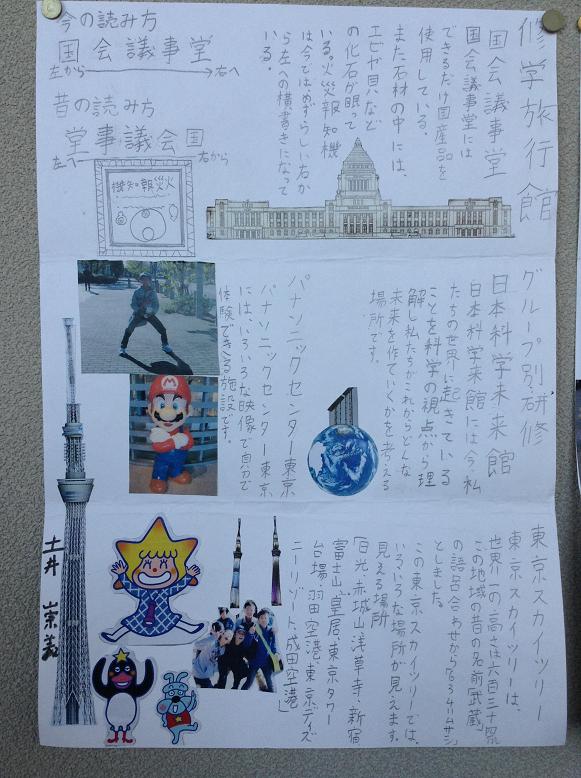 修学旅行館
国会議事堂
国会議事堂には
できるだけ国産品を
使用している。
また石材の中には、
エビや貝など
の化石が眠って
いる。火災報知機
は今ではめずらしい右か
ら左への横書きになって
いる。
今の読み方
国会議事堂
左から→右へ
昔の読み方
堂事議会国
左へ 右から
機知報災火
グループ別研修
日本科学未来館
日本科学来館には今、私
たちの世界に起きている
ことを科学の視点から理
解し私たちがこれからどんな
未来を作ていくかを考える
場所です。
パナソニックセンター東京
パナソニックセンター東京
には、いろいろな映像で自分で
体験できる施設です。
東京スカイツリー
東京スカイツリーは、
世界一の高さは六百三十四
この地域の昔の名前「武蔵」
の語呂合わせから「634」ムサシ
としました。
この東京スカイツリーでは、
いろいろな場所が見えます。
見える場所
「日光、赤城山、浅草寺、新宿
富士山、皇居、東京タワー
台場、羽田空港、東京ディズ
ニーリゾート、成田空港」
土井